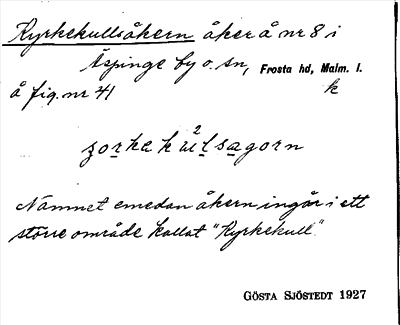 Kyrkekullsåkern åker å nr 8 i
Äspinge by o. sn, Frosta hd, Malm. l.
å fig. nr 41 k
Namnet emedan åkern ingår i ett
större område kallat "Kyrkekull".
GÖSTA SJÖSTEDT 1927